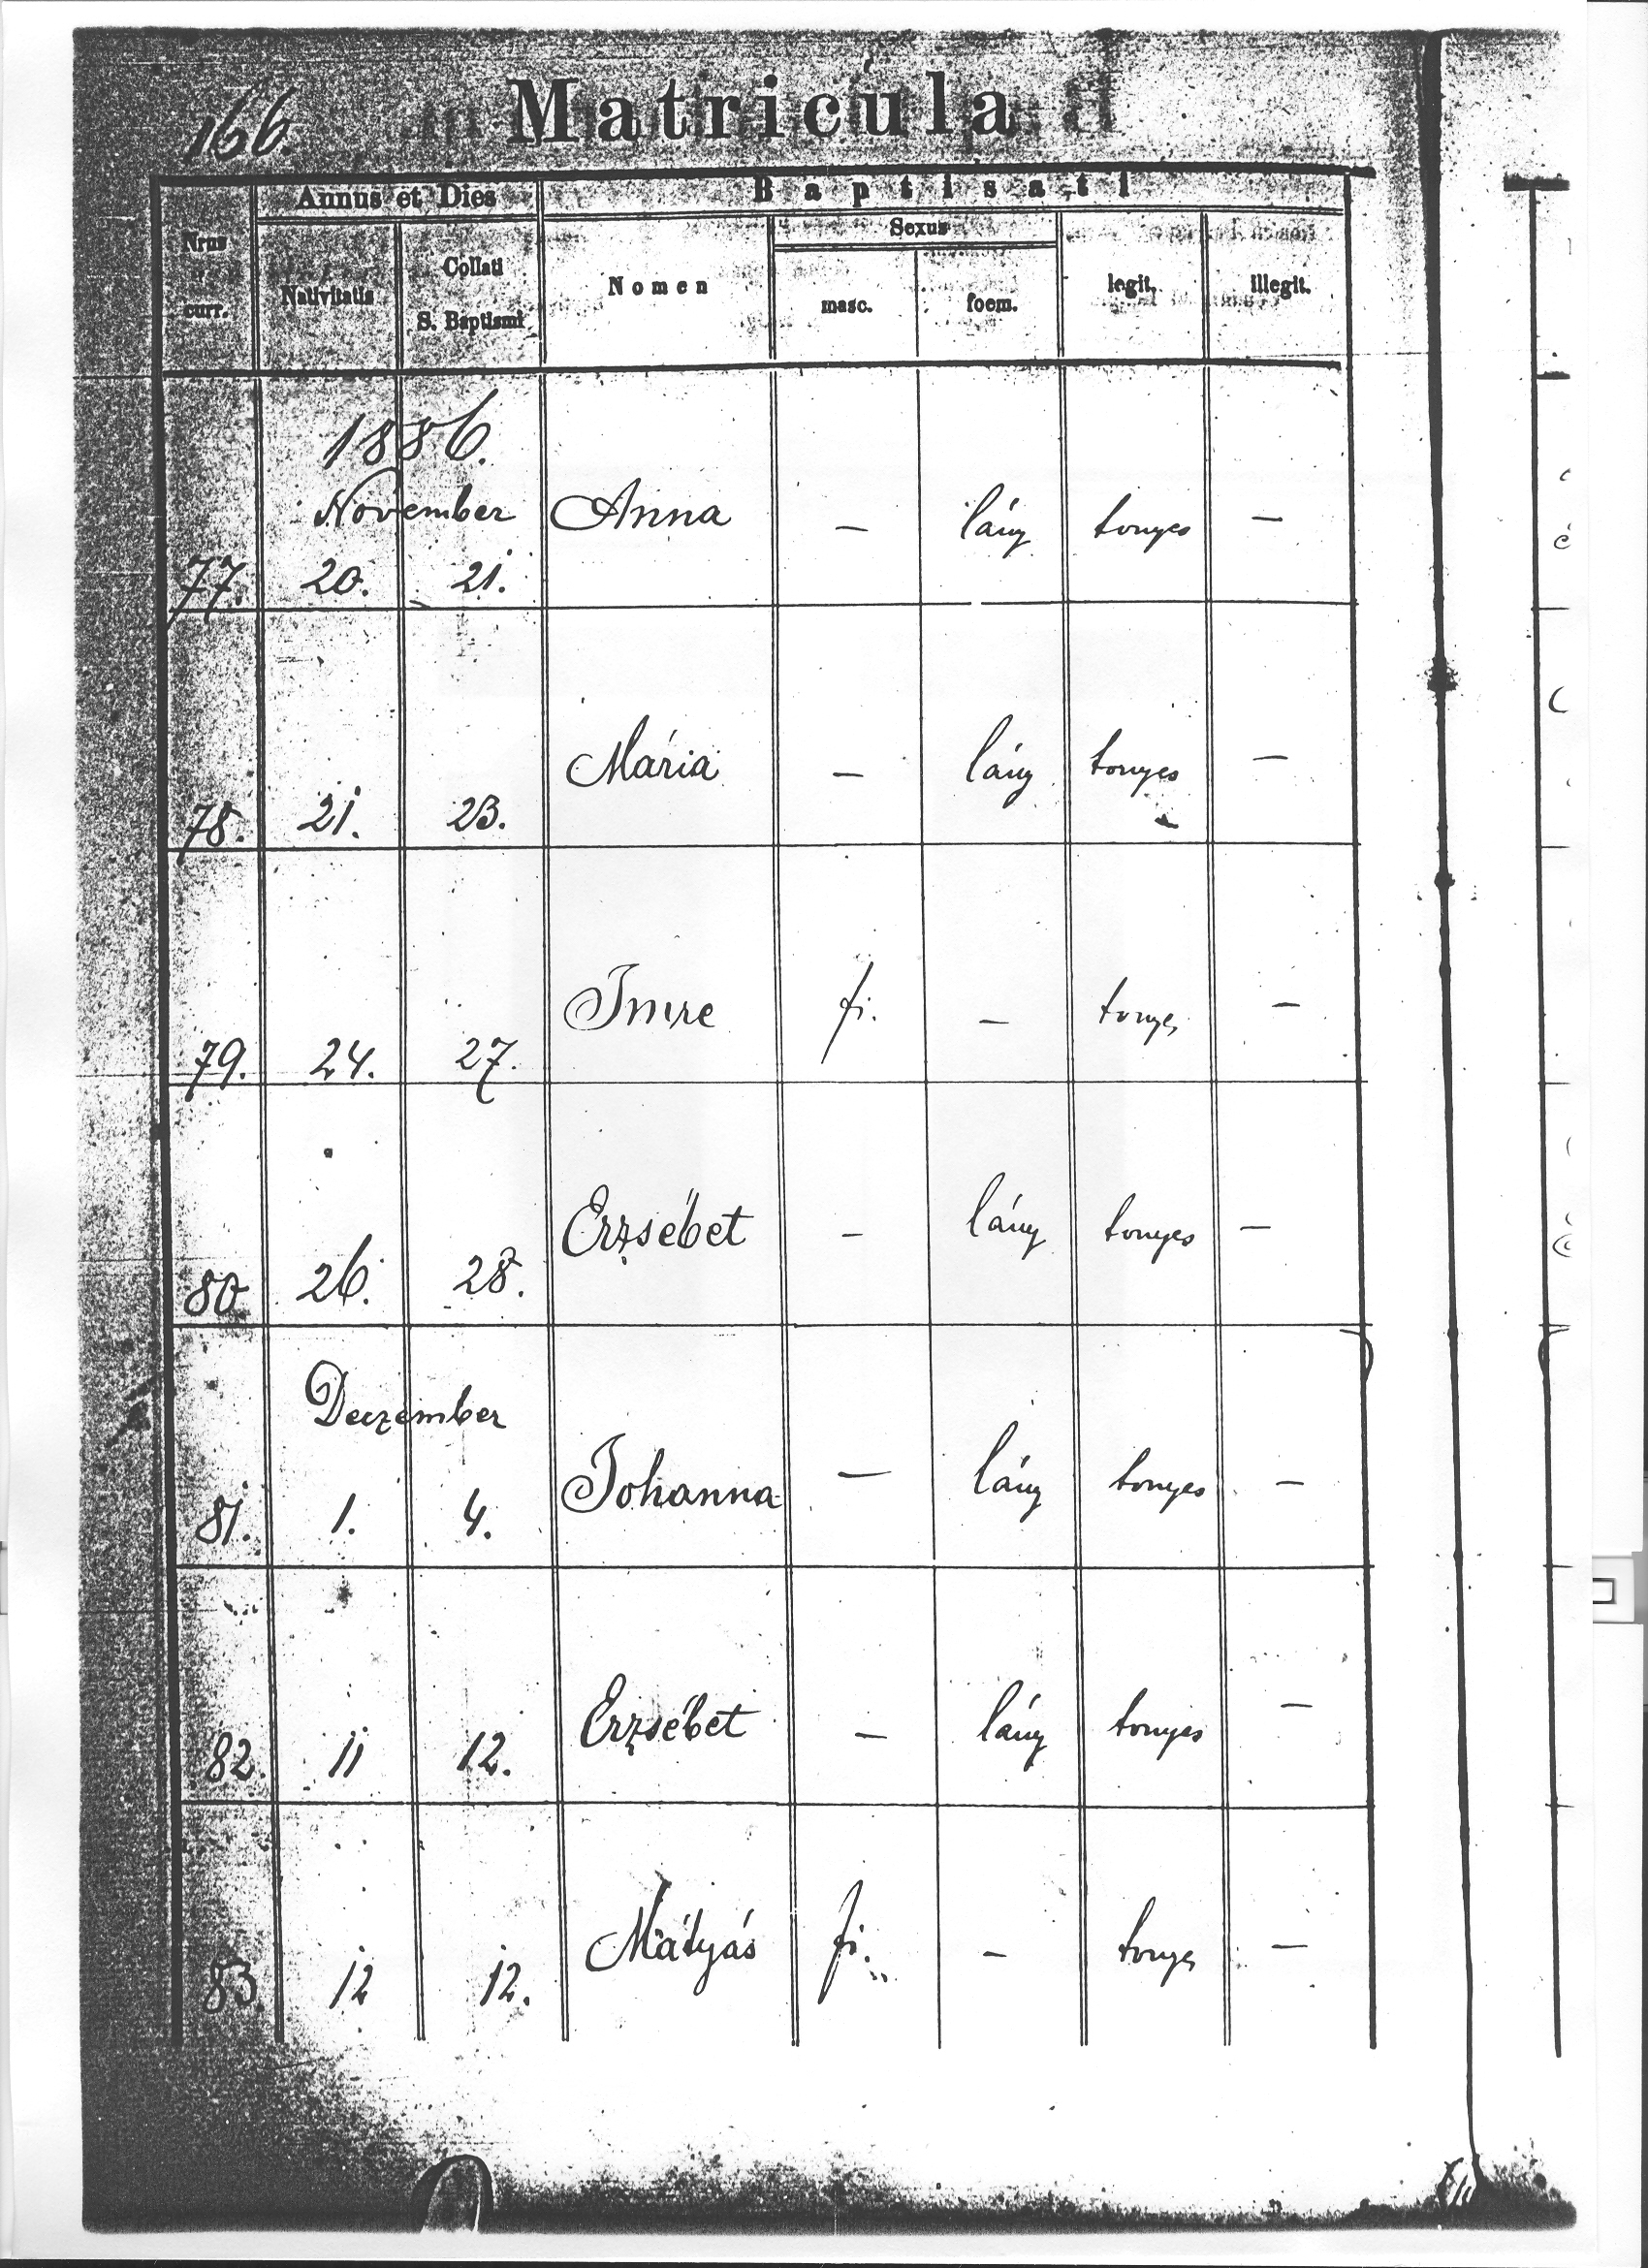 166. Matricula
Annus et Dies Baptisati
Nrus curr. Nativitatis Collati S. Baptismi Nomen Sexus legit. illegit.
masc. foem.
1886.
November Anna — lány tvnyes —
77. 20. 21.
Mária — lány tvnyes —
78. 21. 23.
Imre fi. — tvnyes —
79. 24. 27.
Erzsébet — lány tvnyes —
80 26. 28.
Deczember
Johanna — lány tvnyes —
81. 1. 4.
Erzsébet — lány tvnyes —
82. 11 12.
Mátyás fi. — tvnyes —
83. 12 12.